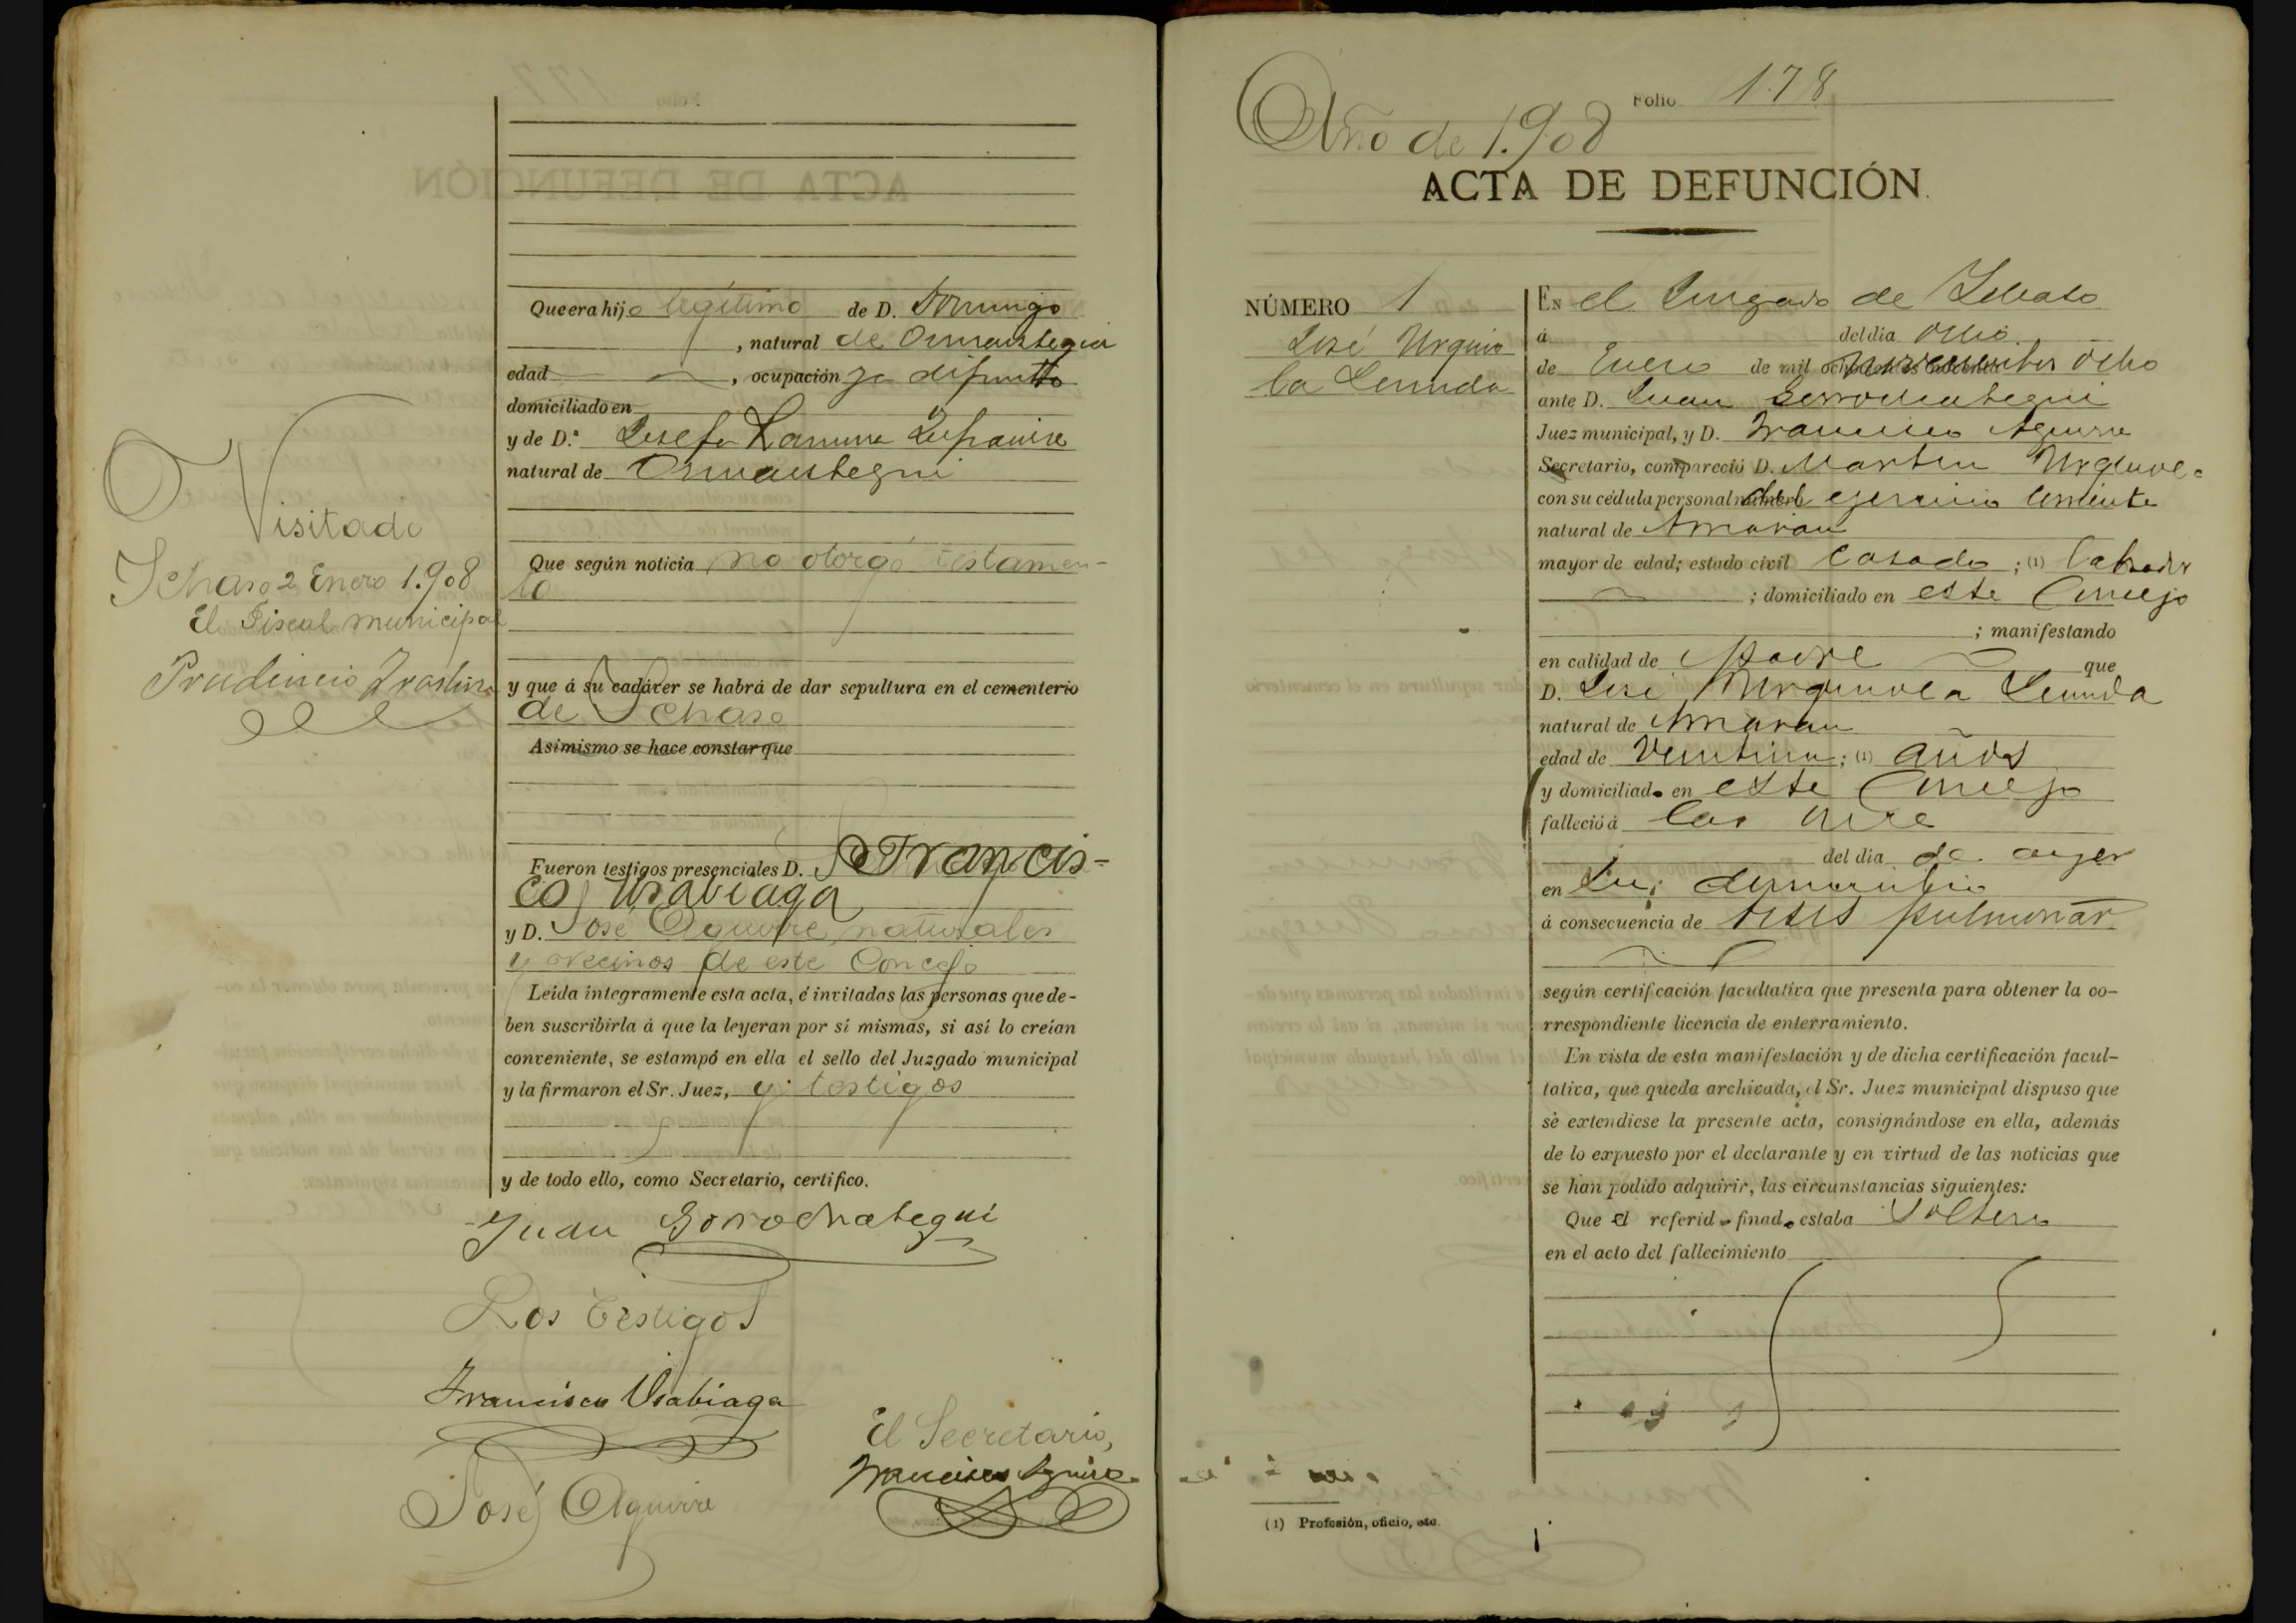 Que era hijo legítimo de D. Domingo
, natural de Ormaiztegui
edad , ocupación ya difunto
domiciliado en
y de D.ª Josefa Ramona
natural de Ormaiztegui
Que según noticia no otorgó testamen-
to
y que á su cadáver se habrá de dar sepultura en el cementerio
de Ichaso
Asimismo se hace constar que
Fueron testigos presenciales D. Francis-
co Usabiaga
y D. José Aguirre naturales
y vecinos de este Concejo
Leída íntegramente esta acta, é invitadas las personas que de-
ben suscribirla á que la leyeran por sí mismas, si así lo creían
conveniente, se estampó en ella el sello del Juzgado municipal
y la firmaron el Sr. Juez, y testigos
y de todo ello, como Secretario, certifico.
Juan Gorrochategui
Los testigos
Francisco Usabiaga
El Secretario,
Francisco Aguirre
José Aguirre
Visitado
Ichaso 2 Enero 1.908
El Fiscal municipal
Prudencio
Folio 178
Año de 1.908
ACTA DE DEFUNCIÓN.
NÚMERO 1
José Urquio
la Lecunda
EN el Juzgado de Ichaso
á del día ocho
de Enero de mil novecientos ocho
ante D. Juan Gorrochategui
Juez municipal, y D. Francisco Aguirre
Secretario, compareció D. Martin
con su cédula personal del ejercicio corriente
natural de
mayor de edad; estado civil Casado ; (1) labrador
; domiciliado en este Concejo
; manifestando
en calidad de Padre que
D. José Urquiola Lecunda
natural de
edad de ; (1) años
y domiciliad. en este Concejo
falleció á las once
del día de ayer
en su domicilio
á consecuencia de tisis pulmonar
según certificación facultativa que presenta para obtener la co-
rrespondiente licencia de enterramiento.
En vista de esta manifestación y de dicha certificación facul-
tativa, que queda archivada, el Sr. Juez municipal dispuso que
se extendiese la presente acta, consignándose en ella, además
de lo expuesto por el declarante y en virtud de las noticias que
se han podido adquirir, las circunstancias siguientes:
Que el referid. finad. estaba Soltero
en el acto del fallecimiento
(1) Profesión, oficio, etc.